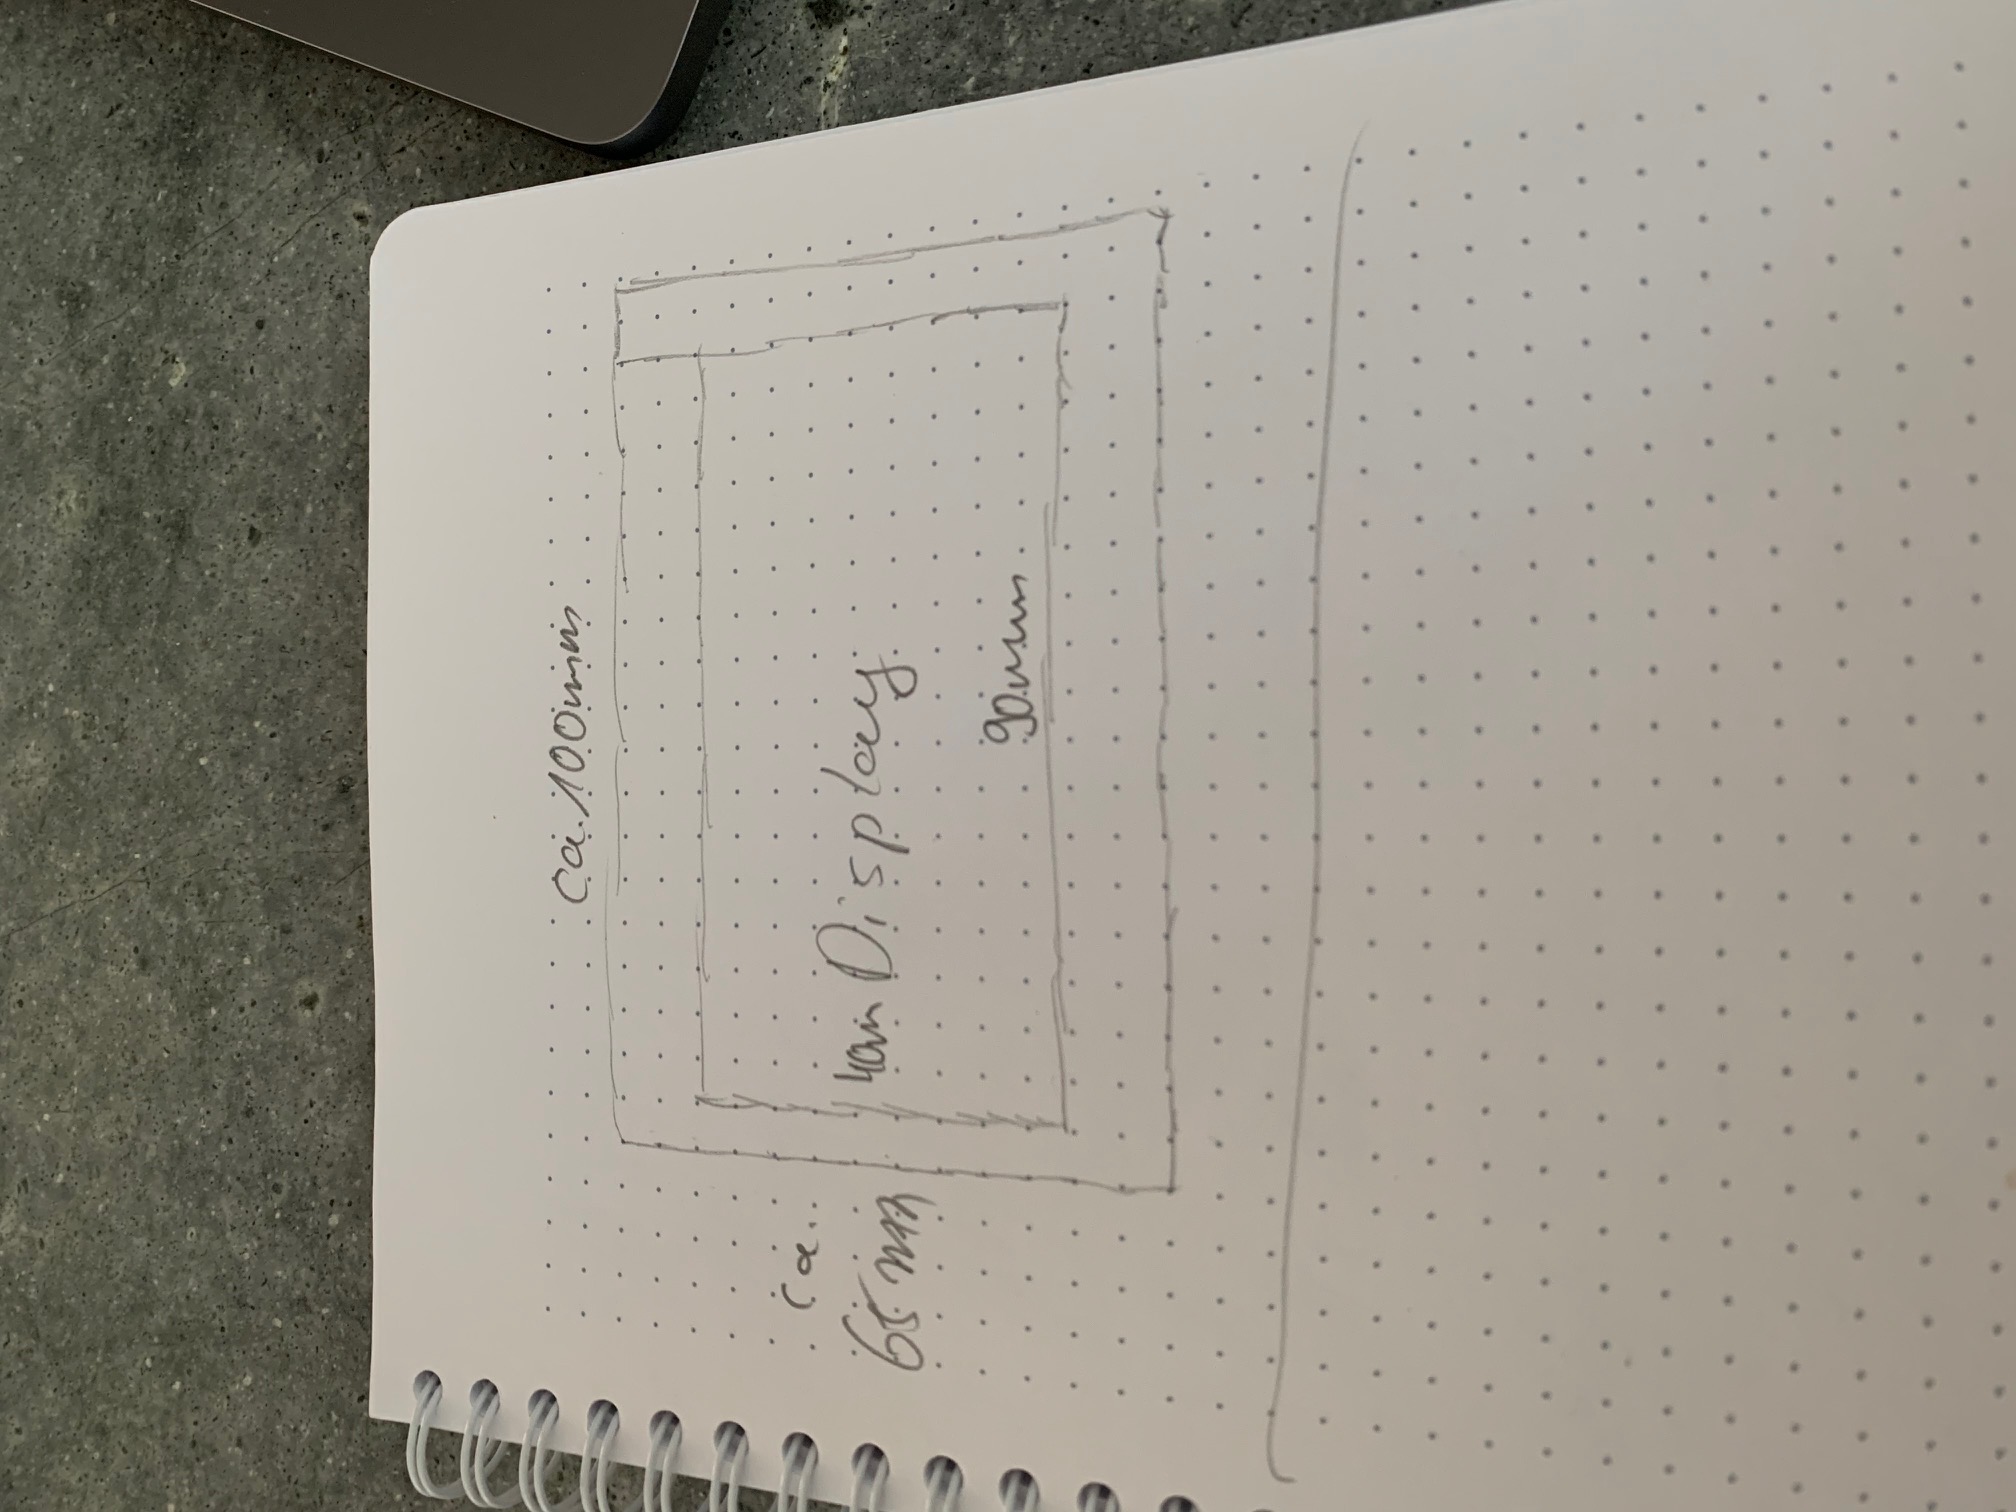 ca. 100mm
ca.
65 mm
Display
90mm